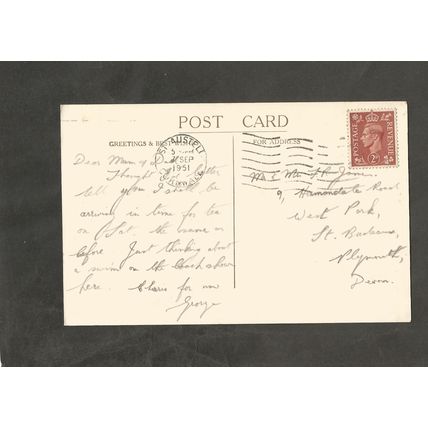 POST CARD
GREETINGS & BEST WISHES
FOR ADDRESS
ST AUSTELL
SEP
1951
CORNWALL
POSTAGE
REVENUE
2D
Dear Mum & Dad
Thought I better
tell you I shall be
arriving in time for tea
on Sat. the same as
before. Just thinking about
a swim on the beach shown
here. Cheerio for now
George
Mr & Mrs
9, Road
West Park,
St. Budeaux,
Plymouth,
Devon.